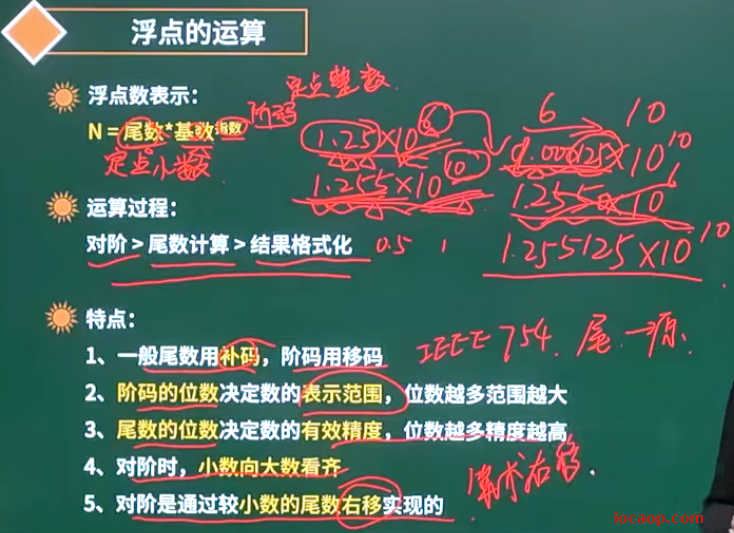 浮点的运算
浮点数表示：
定点整数
N = 尾数*基数指数
阶码
定点小数
1.25×10
6
1.255×10
10
6 10
0.000125×10
10
1.255125×10
10
运算过程：
对阶 > 尾数计算 > 结果格式化
0.5 1
特点：
1、一般尾数用补码，阶码用移码
IEEE 754. 尾 一源.
2、阶码的位数决定数的表示范围，位数越多范围越大
3、尾数的位数决定数的有效精度，位数越多精度越高
4、对阶时，小数向大数看齐
算术右移.
5、对阶是通过较小数的尾数右移实现的